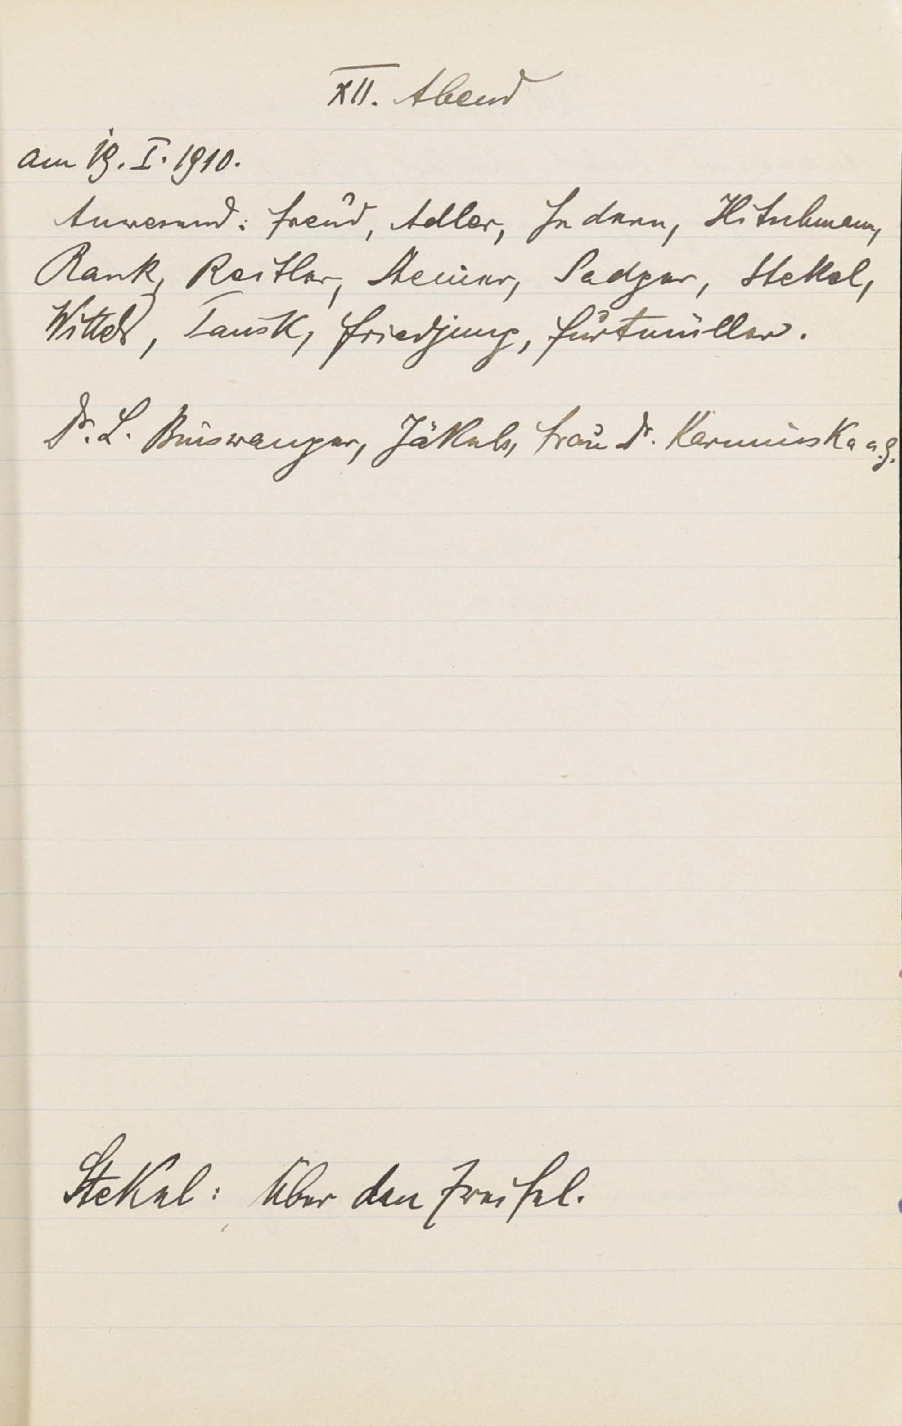 XII. Abend
am 19. I. 1910.
Anwesend: Freud, Adler, Federn, Hitschmann,
Rank, Reitler, Steiner, Sadger, Stekel,
Wittels, Tausk, Friedjung, Furtmüller.
Dr. L. Binswanger, Jäkels, Frau Dr. Karminska a.g.
Stekel: Über den Zweifel.